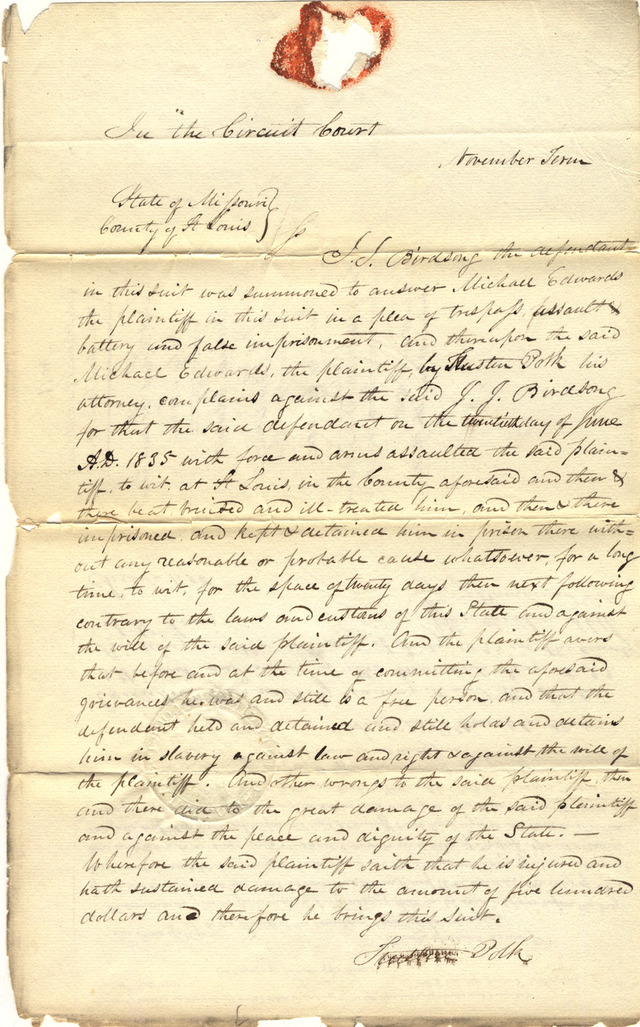 In the Circuit Court
November Term
State of Missouri }
County of St Louis } ss
J. J. Birdsong the defendant
in this suit was summoned to answer Michael Edwards
the plaintiff in this suit in a plea of trespass, assault &
battery and false imprisonment, and thereupon the said
Michael Edwards, the plaintiff, by Polk his
attorney, complains against the said J. J. Birdsong
for that the said defendant on the day of June
A.D. 1835 with force and arms assaulted the said plain=
tiff, to wit, at St Louis, in the County aforesaid and then &
there beat bruised and ill-treated him, and then & there
imprisoned, and kept & detained him in prison there with=
out any reasonable or probable cause whatsoever, for a long
time, to wit, for the space of twenty days then next following
contrary to the laws and customs of this State and against
the will of the said plaintiff. And the plaintiff avers
that before and at the time of committing the aforesaid
grievances he was and still is a free person, and that the
defendant held and detained and still holds and detains
him in slavery against law and right & against the will of
the plaintiff. And other wrongs to the said plaintiff then
and there did to the great damage of the said plaintiff
and against the peace and dignity of the State. —
Wherefore the said plaintiff saith that he is injured and
hath sustained damage to the amount of five hundred
dollars and therefore he brings this suit.
Polk